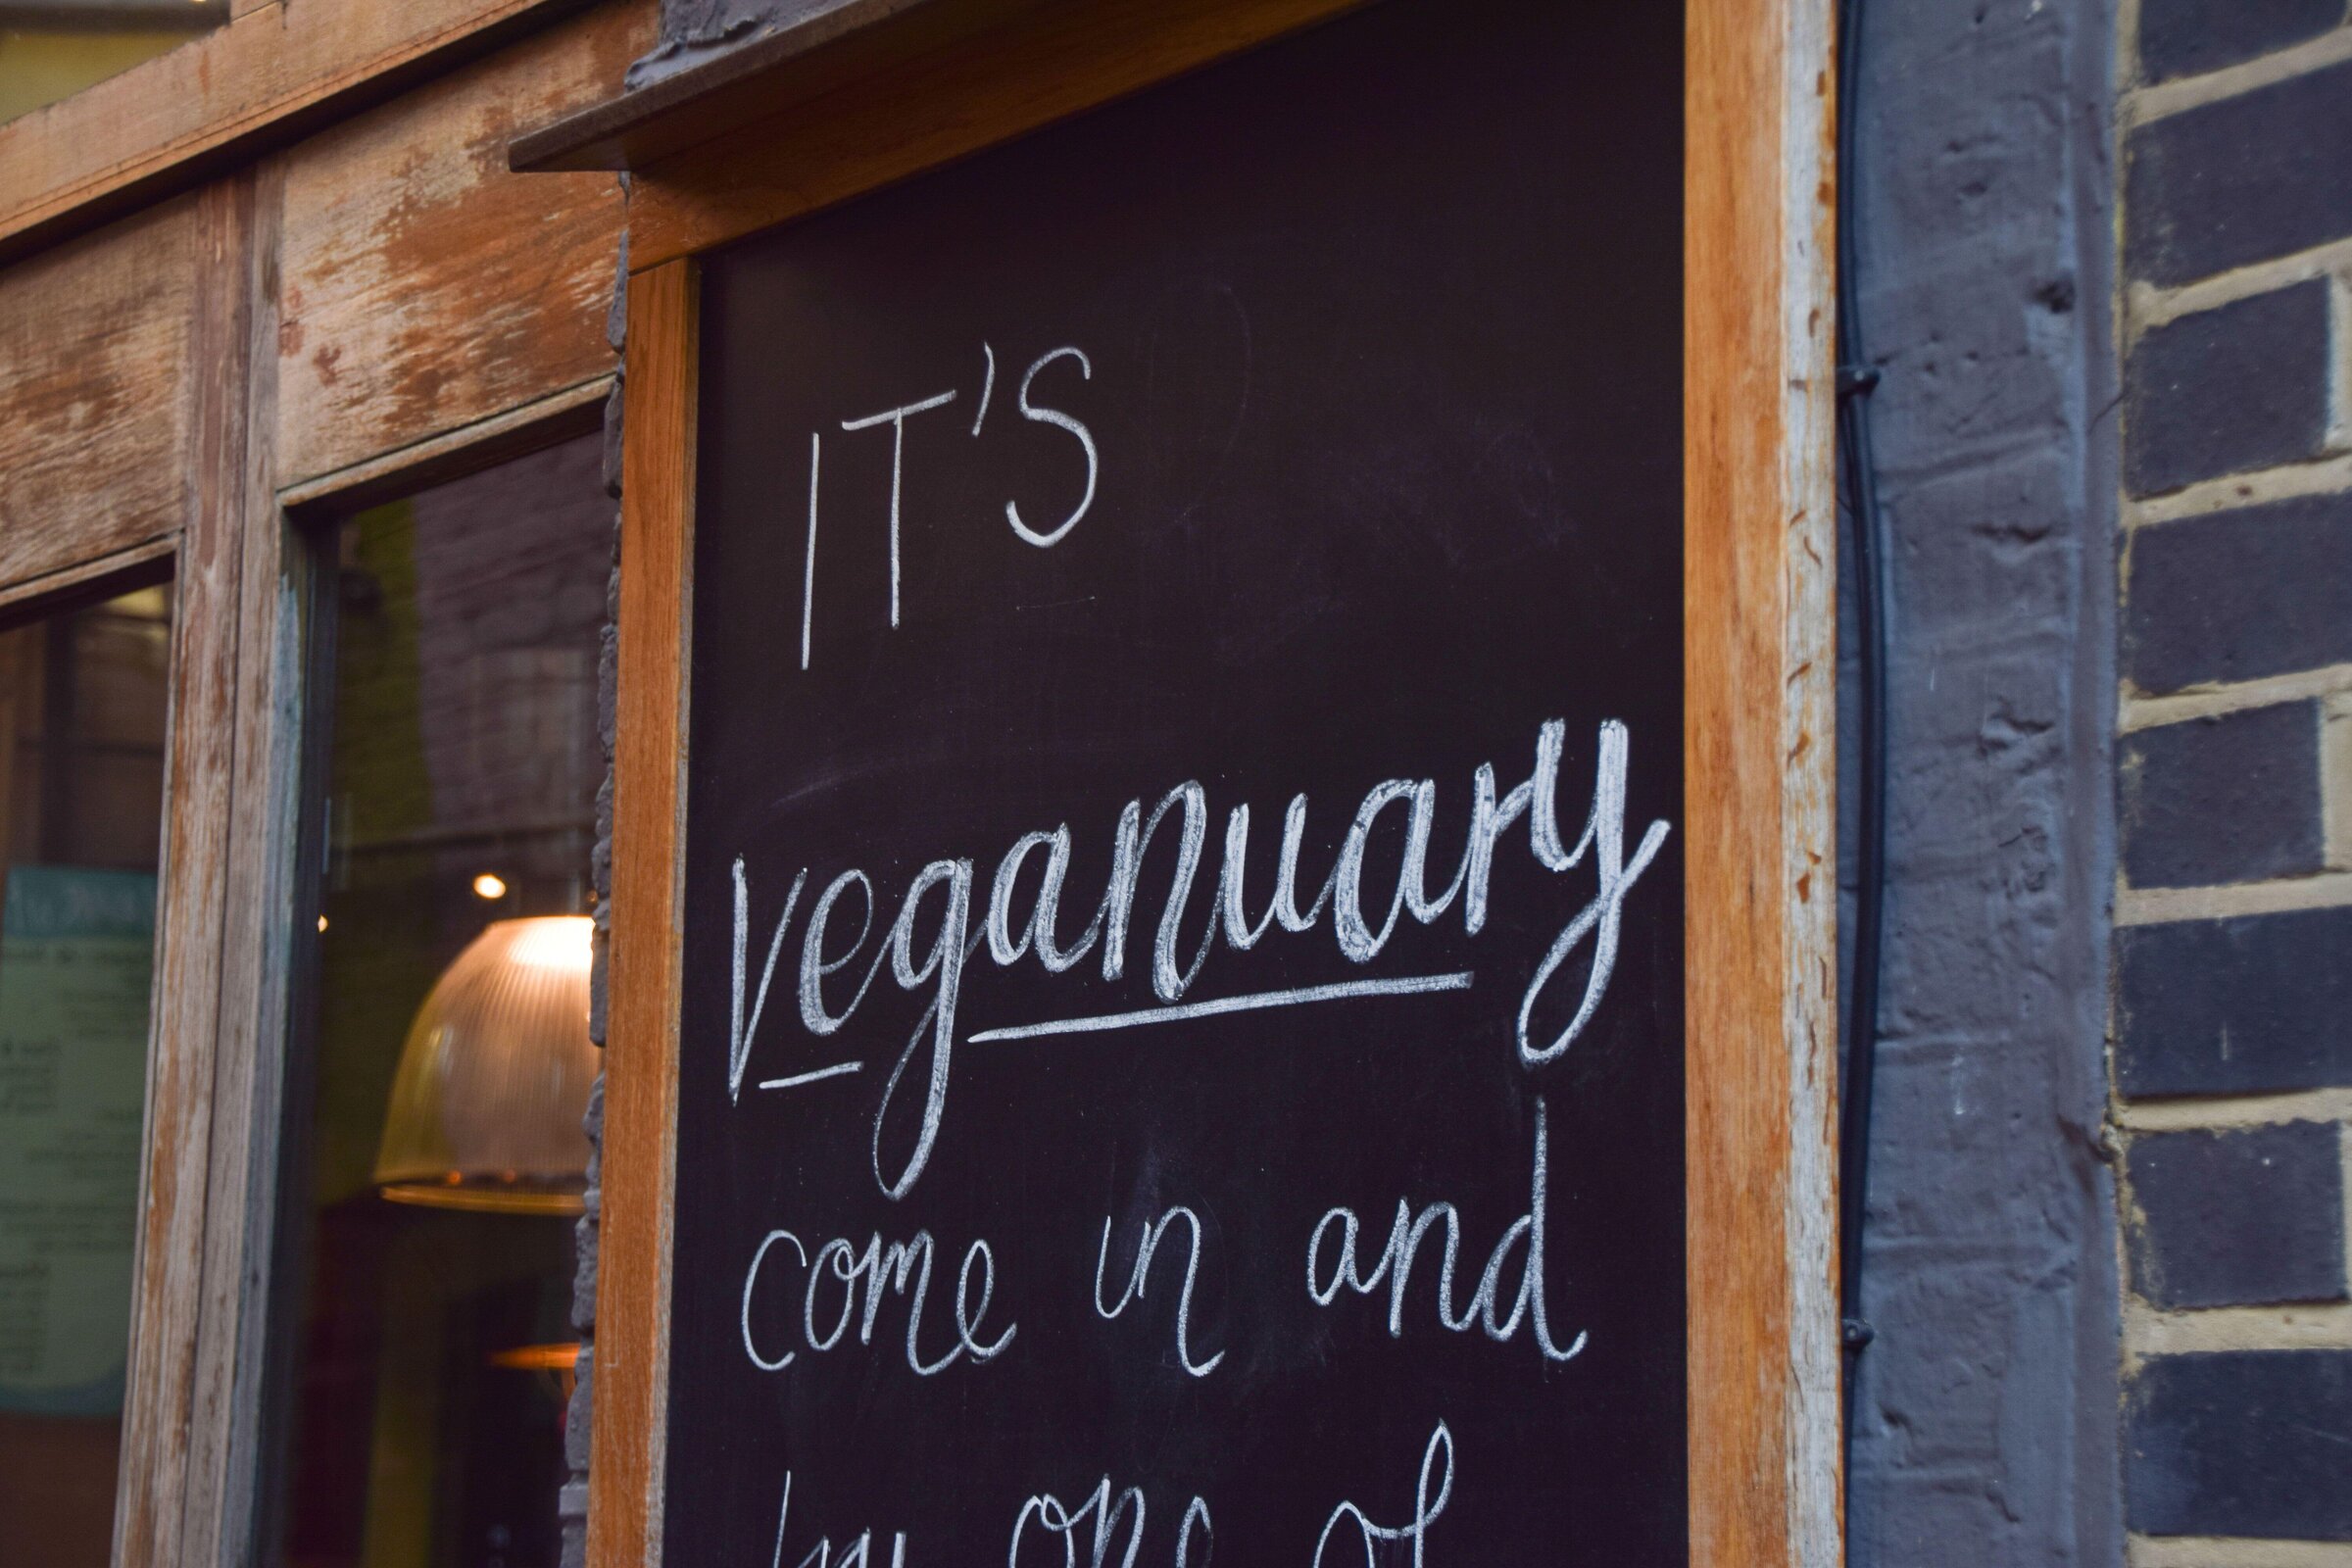 IT'S
Veganuary
come in and
one of